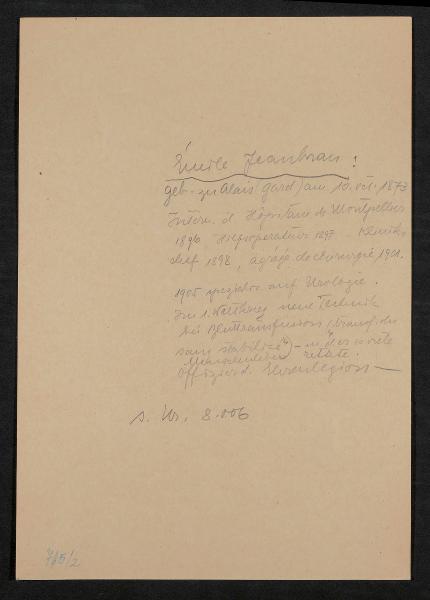 Émile Jeanbrau:
geb. zu Alais (gard) am 10. oct. 1873
Intern. d. Hôpitaux de Montpellier
1896, 1897 Klinik
chef 1898, agrégé de chirurgie 1901.
1905 auf Urologie.
Im 1. Weltkrieg neue Technik
bei Bluttransfusion (transfusion
sans stabilisé) –
rettete.
Offizier d. Ehrenlegion —
s. Nr. 8.006
785/2